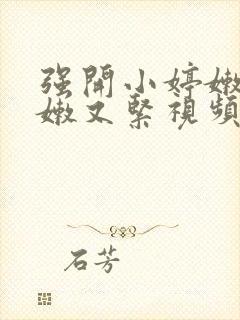 强開小婷嫩
嫩又緊視頻
石芳